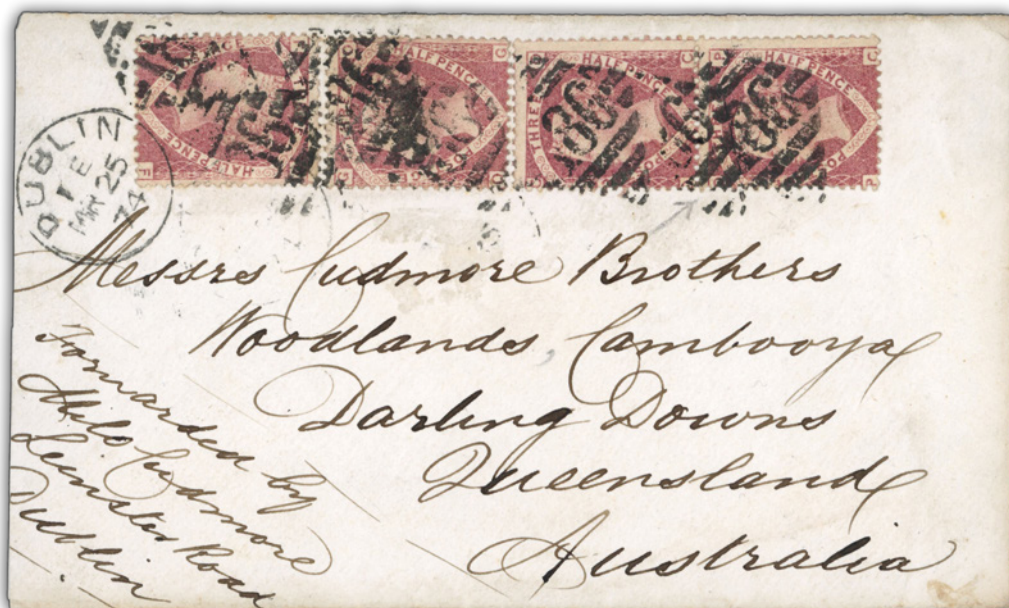 HALF PENCE
HALF PENCE
THREE HALF PENCE
HALF PENCE
186
186
DUBLIN
1 E
MR 25
74
Messrs Cudmore Brothers
Woodlands Cambooya
Darling Downs
Queensland
Australia
Forwarded by
Milo Cudmore
Leinster Road
Dublin